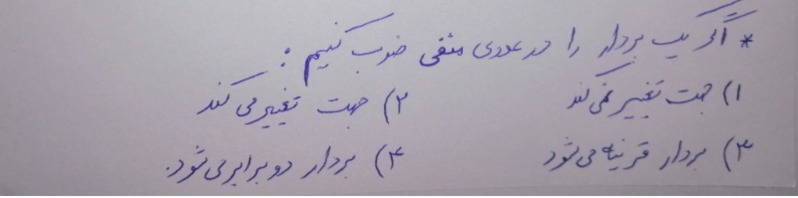 * اگر یک بردار را در عددی منفی ضرب کنیم :
۱) جهت تغییر نمی کند ۲) جهت تغییر می کند
۳) بردار قرینه می شود ۴) بردار دو برابر می شود.